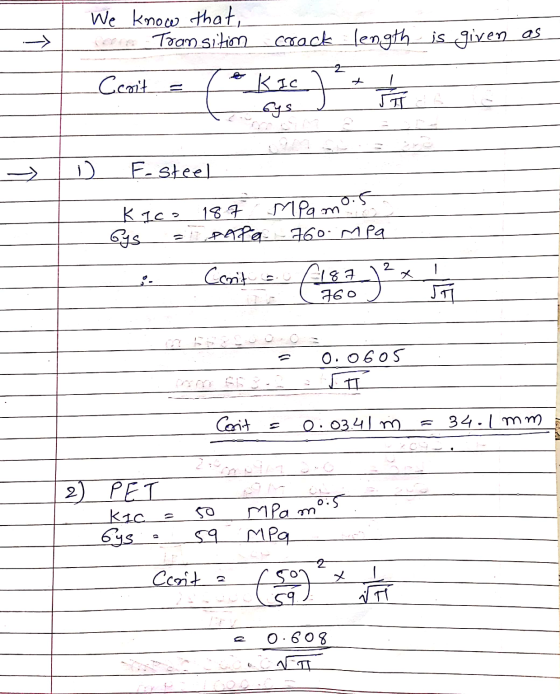 We know that,
→ Transition crack length is given as
Ccrit = ( KIC / σys )² × 1/√π
→ 1) F-steel
KIC = 187 MPa m^0.5
σys = 760 MPa
∴ Ccrit = (187/760)² × 1/√π
= 0.0605/√π
Ccrit = 0.0341 m = 34.1 mm
2) PET
KIC = 50 MPa m^0.5
σys = 59 MPa
Ccrit = (50/59)² × 1/√π
= 0.608/√π